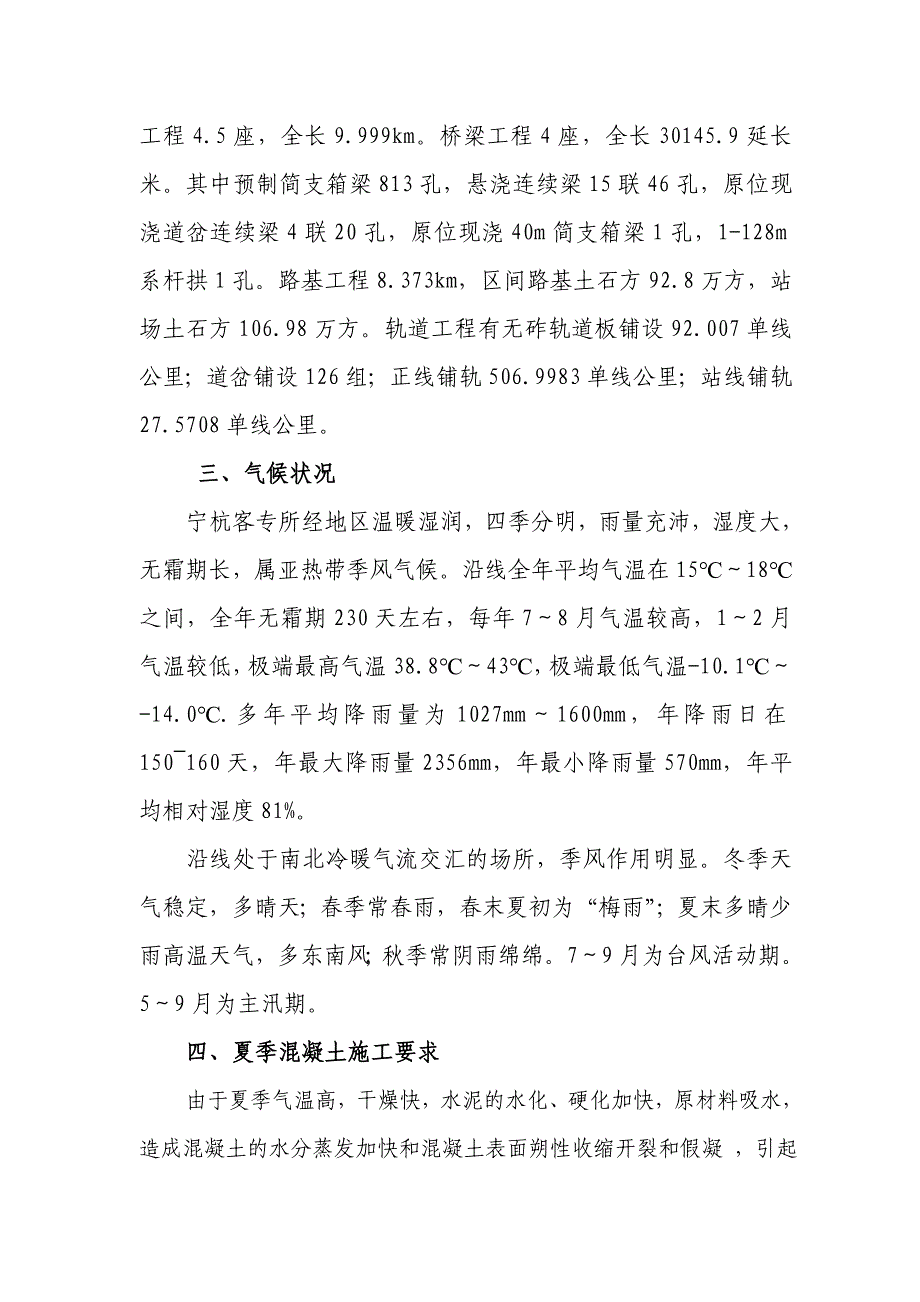 工程 4.5 座，全长 9.999km。桥梁工程 4 座，全长 30145.9 延长
米。其中预制简支箱梁 813 孔，悬浇连续梁 15 联 46 孔，原位现
浇道岔连续梁 4 联 20 孔，原位现浇 40m 简支箱梁 1 孔，1-128m
系杆拱 1 孔。路基工程 8.373km，区间路基土石方 92.8 万方，站
场土石方 106.98 万方。轨道工程有无砟轨道板铺设 92.007 单线
公里；道岔铺设 126 组；正线铺轨 506.9983 单线公里；站线铺轨
27.5708 单线公里。
三、气候状况
宁杭客专所经地区温暖湿润，四季分明，雨量充沛，湿度大，
无霜期长，属亚热带季风气候。沿线全年平均气温在 15℃～18℃
之间，全年无霜期 230 天左右，每年 7～8 月气温较高，1～2 月
气温较低，极端最高气温 38.8℃～43℃，极端最低气温-10.1℃～
-14.0℃. 多年平均降雨量为 1027mm～1600mm，年降雨日在
150¯160 天，年最大降雨量 2356mm，年最小降雨量 570mm，年平
均相对湿度 81%。
沿线处于南北冷暖气流交汇的场所，季风作用明显。冬季天
气稳定，多晴天；春季常春雨，春末夏初为“梅雨”；夏末多晴少
雨高温天气，多东南风；秋季常阴雨绵绵。7～9 月为台风活动期。
5～9 月为主汛期。
四、夏季混凝土施工要求
由于夏季气温高，干燥快，水泥的水化、硬化加快，原材料吸水，
造成混凝土的水分蒸发加快和混凝土表面朔性收缩开裂和假凝 ，引起